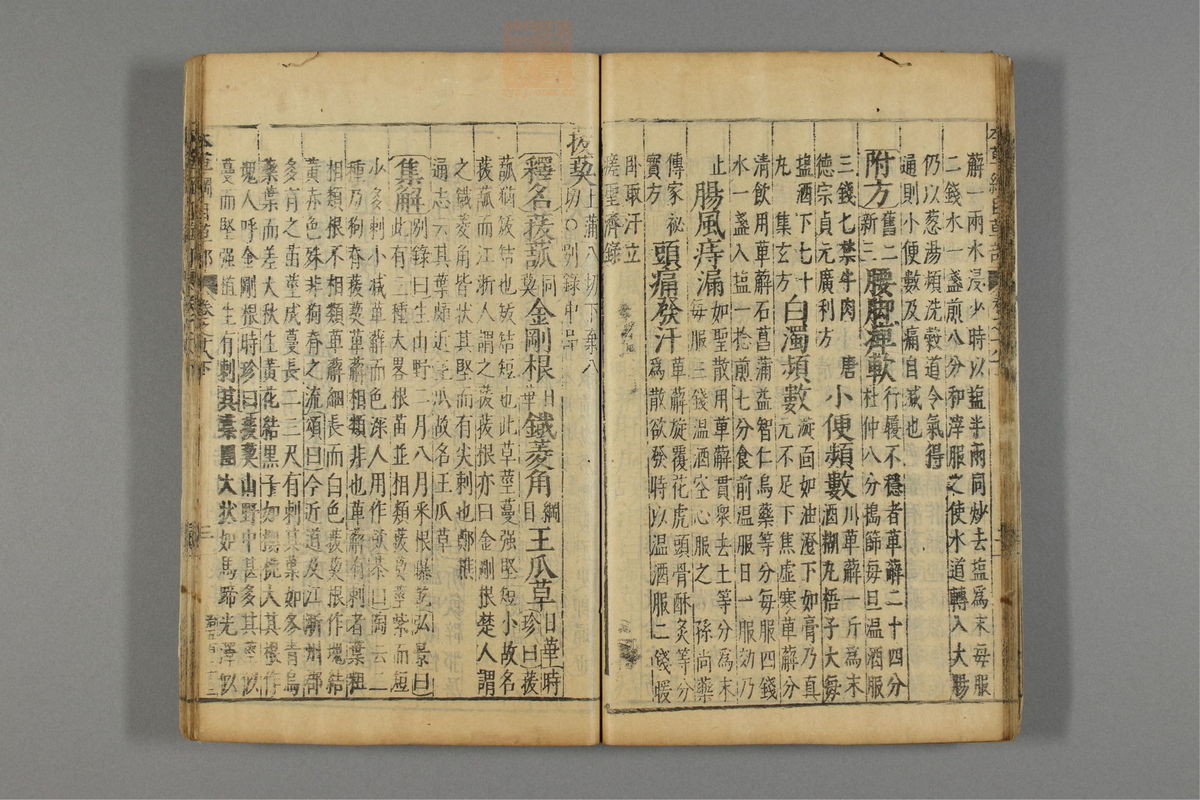 薢一兩水浸少時以盐半兩同炒去盐為末每服
二錢水一盞煎八分和滓服之使水道轉入大腸
仍以葱湯頻洗穀道令氣得
通則小便數及痛自減也
附方舊二新三腰脚痺軟行履不穩者萆薢二十四分杜仲八分搗篩每旦温酒服
三錢七禁牛肉唐
德宗貞元廣利方小便頻數川萆薢一斤為末酒糊丸梧子大每
盐酒下七十
丸集玄方白濁頻數漩面如油澄下如膏乃真元不足下焦虛寒萆薢分
清飲用萆薢石菖蒲益智仁烏藥等分每服四錢
水一盞入盐一捻煎七分食前温服日一服効乃
止腸風痔漏如聖散用萆薢貫衆去土等分為末每服三錢温酒空心服之孫尚藥
傳家祕
寳方頭痛發汗萆薢旋覆花虎頭骨酥炙等分為散欲發時以温酒服二錢暖
卧取汗立
瘥聖濟錄
菝葜上蒲八切下棄八切○别錄中品
釋名菝菰同葜金剛根日華鐵菱角綱目王瓜草日華時珍曰菝
菰猶𡝩結也𡝩結短也此草莖蔓强堅短小故名
菝菰而江浙人謂之菝菝根亦曰金剛根楚人謂
之鐵菱角皆状其堅而有尖刺也鄭樵
通志云其葉頗近王瓜故名王瓜草
集解别錄曰生山野二月八月采根曝乾弘景曰此有三種大畧根苗並相類菝葜莖紫而短
小多刺小减萆薢而色深人用作飲恭曰陶云三
種乃狗脊菝葜萆薢相類非也萆薢有刺者葉粗
相類根不相類萆薢細長而白色菝葜根作塊結
黄赤色殊非狗脊之流頌曰今近道及江浙州郡
多有之苗莖成蔓長二三尺有刺其葉如冬青烏
藥葉而差大秋生黄花結黑子如櫻桃大其根作
塊人呼金剛根時珍曰菝葜山野中甚多其莖似
蔓而堅强植生有刺其葉團大状如馬蹄光澤似